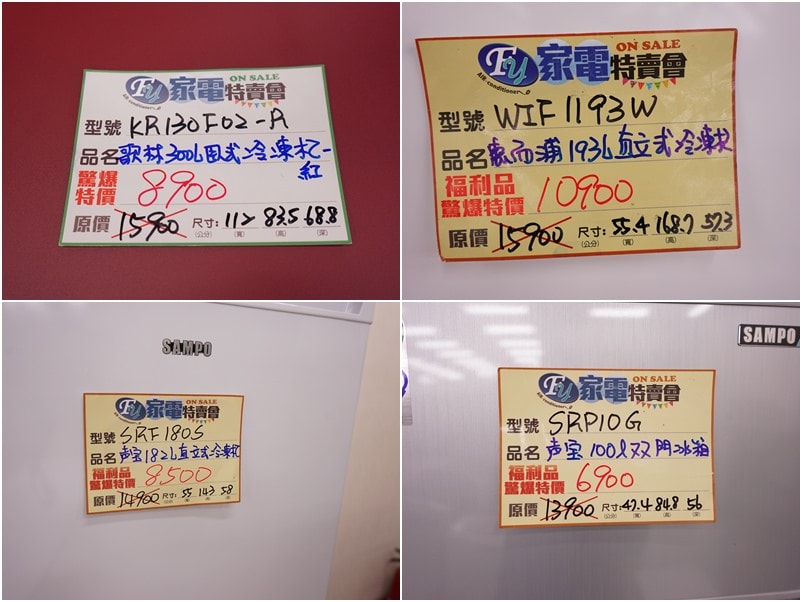 Fy 家電特賣會 ON SALE
Air-conditioner
型號 KR130F02-A
品名 歌林300L臥式冷凍柜-紅
驚爆特價 8900
原價 15900 尺寸:(公分) 112(寬) 83.5(高) 68.8(深)
Fy 家電特賣會 ON SALE
Air-conditioner
型號 WIF1193W
品名 惠而浦193L直立式冷凍柜
福利品驚爆特價 10900
原價 15900 尺寸:(公分) 55.4(寬) 168.7(高) 57.3(深)
SAMPO
Fy 家電特賣會 ON SALE
型號 SRF180S
品名 声宝182L直立式冷凍柜
福利品驚爆特價 8500
原價 14900 尺寸: 55 143 58
SAMPO
Fy 家電特賣會 ON SALE
型號 SRP10G
品名 声宝100l双門冰箱
福利品驚爆特價 6900
原價 13900 尺寸:(公分) 47.4 84.8 56